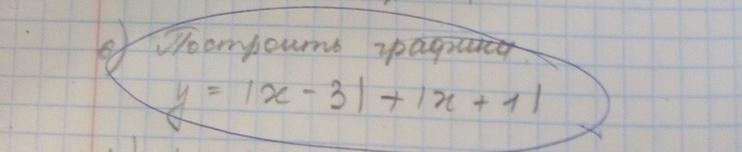 в) Построить график
y = |x - 3| + |x + 1|